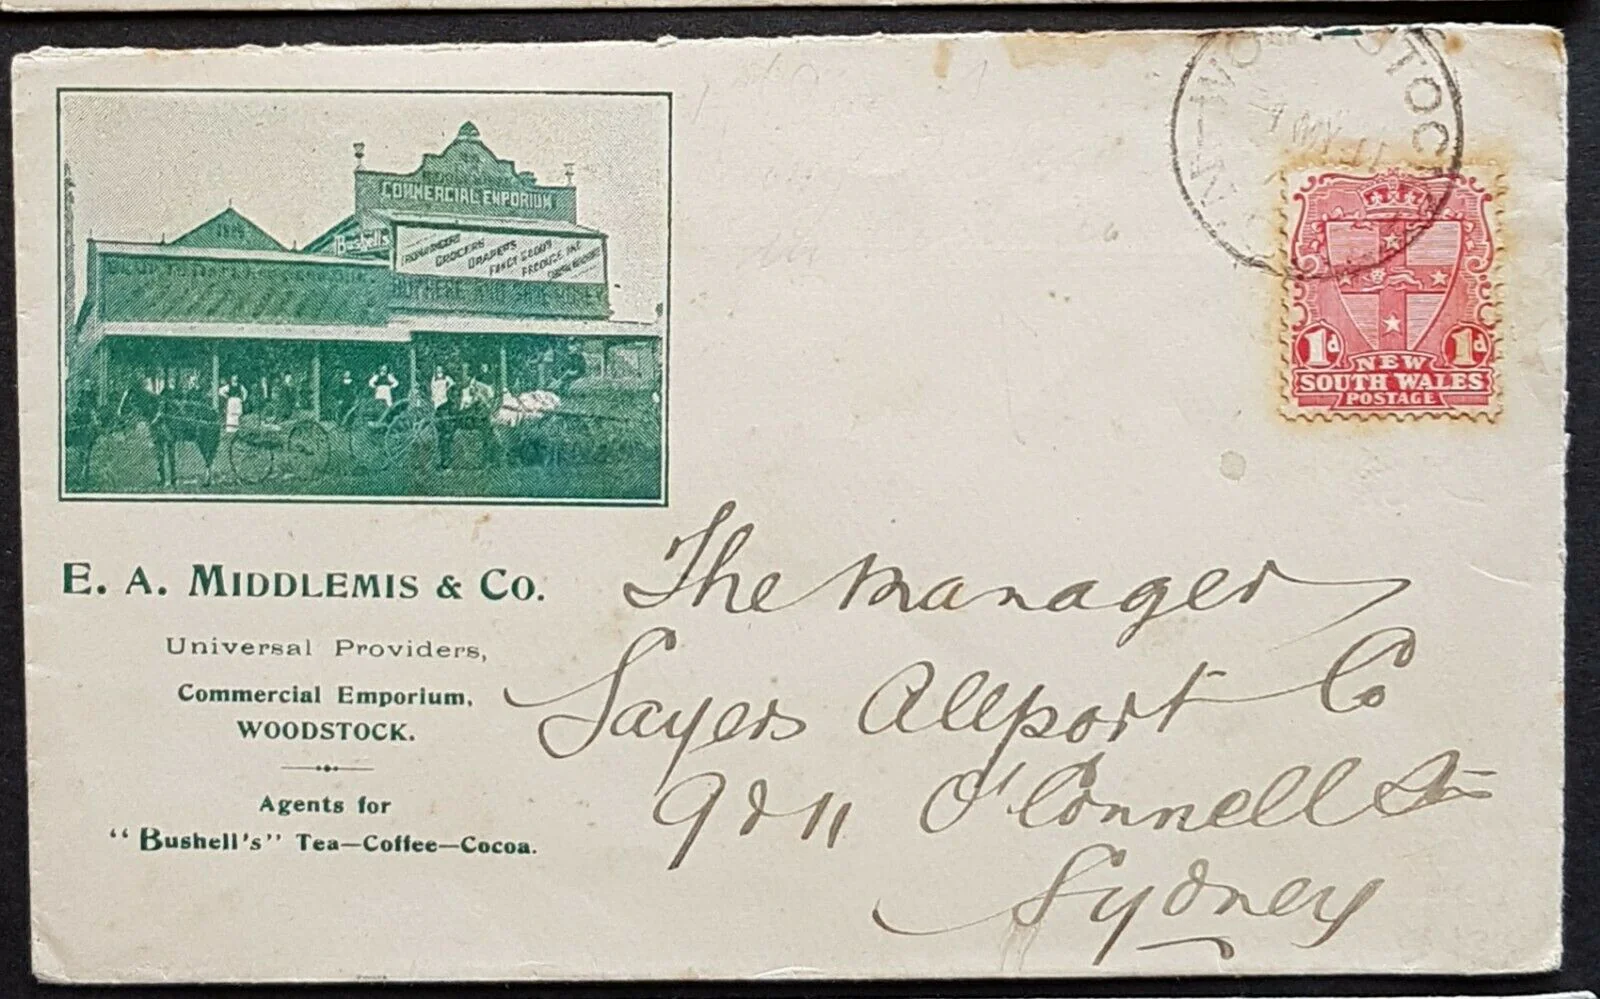 COMMERCIAL EMPORIUM
Bushell's
IRONMONGERY
GROCERIES
DRAPERS
FANCY GOODS
PRODUCE AND
E. A. MIDDLEMIS & CO.
Universal Providers,
Commercial Emporium,
WOODSTOCK.
Agents for
"Bushell's" Tea—Coffee—Cocoa.
WOODSTOCK
1d 1d
NEW
SOUTH WALES
POSTAGE
The Manager
Sayers Allport Co
9 & 11 O'Connell St
Sydney